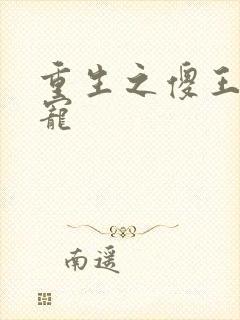 重生之傻王
寵
南遥